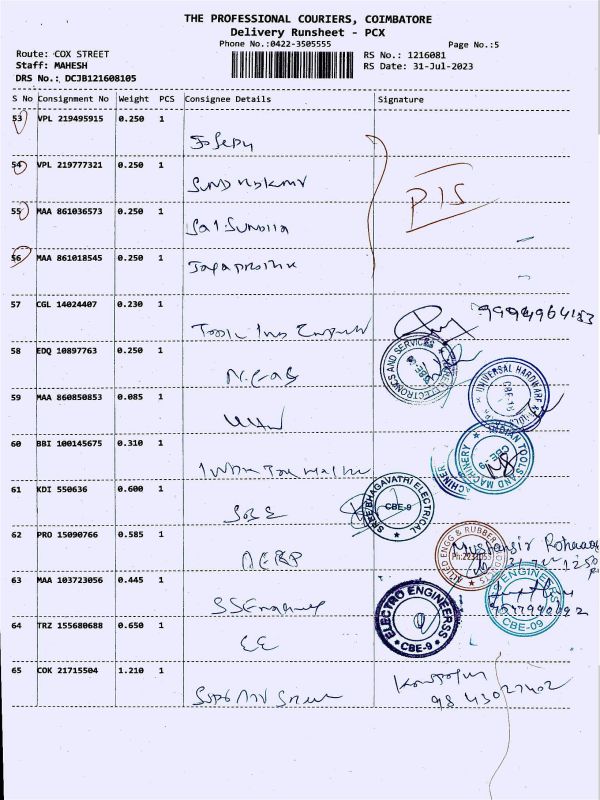 THE PROFESSIONAL COURIERS, COIMBATORE
Delivery Runsheet - PCX
Phone No.:0422-3505555
Page No.:5
Route: COX STREET
RS No.: 1216081
Staff: MAHESH
RS Date: 31-Jul-2023
DRS No.: DCJB121608105
S No Consignment No Weight PCS Consignee Details Signature
53 VPL 219495915 0.250 1
Joseph
54 VPL 219777321 0.250 1
55 MAA 861036573 0.250 1
Sai
56 MAA 861018545 0.250 1
PIS
57 CGL 14024407 0.230 1
Tools Ind
58 EDQ 10897763 0.250 1
ELECTRONICS AND SERVICES
N.
59 MAA 860850853 0.085 1
UNIVERSAL HARDWARE
CBE-18
60 BBI 100145675 0.310 1
INDIAN TOOLS AND MACHINERY
CBE-9
Indian Tou
61 KDI 550636 0.600 1
SREE BHAGAVATHI ELECTRICAL
CBE-9
SBE
62 PRO 15090766 0.585 1
ALLIED ENGG & RUBBER PRODUCTS
AERP
63 MAA 103723056 0.445 1
ENGINEE
CBE-09
SS Engineers
64 TRZ 155680688 0.650 1
ELECTRO ENGINEERSS
CBE-9
EE
65 COK 21715504 1.210 1
98 43027402